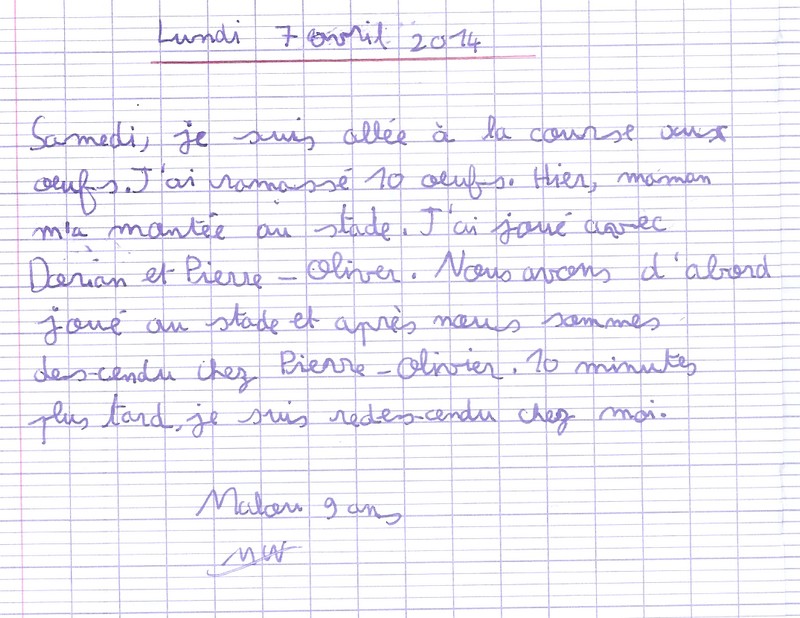 Lundi 7 avril 2014
Samedi, je suis allée à la course aux
oeufs. J'ai ramassé 10 oeufs. Hier, maman
m'a montée au stade. J'ai joué avec
Dorian et Pierre-Oliver. Nous avons d'abord
joué au stade et après nous sommes
descendu chez Pierre-Olivier. 10 minutes
plus tard, je suis redescendu chez moi.
Malou 9 ans